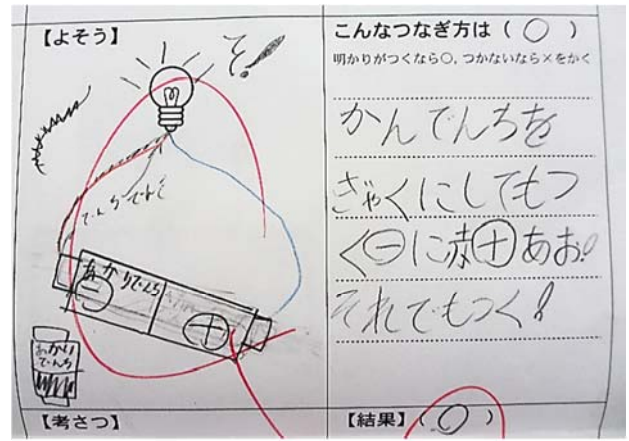 【よそう】
そ!
でんちでれそ
あかりでんち
−
+
あかり
でんち
【考さつ】
こんなつなぎ方は ( ○ )
明かりがつくなら○, つかないなら×をかく
かんでんちを
ぎゃくにしてもつ
く⊖に赤⊕あお!
それでもつく!
【結果】( ○ )